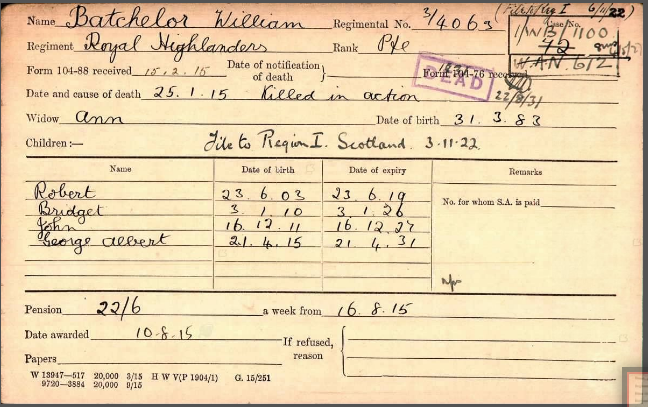 Name Batchelor William Regimental No. 3/4063 (File to Reg I 6/11/22)
Case No.
1/W/B/1100
Regiment Royal Highlanders Rank Pte 72
WAN 612
Form 104-88 received 15.2.15 Date of notification of death } Form 104-76 received
DEAD
22/8/31
Date and cause of death 25.1.15 Killed in action
Widow Ann Date of birth 31.3.83
Children:— File to Region I. Scotland. 3.11.22
Name Date of birth Date of expiry Remarks
Robert 23.6.03 23.6.19
No. for whom S.A. is paid
Bridget 3.1.10 3.1.26
John 16.12.11 16.12.27
George Albert 21.4.15 21.4.31
Pension 22/6 a week from 16.8.15
Date awarded 10.8.15 If refused, reason {
Papers
W 13947—517 20,000 3/15 H W V(P 1904/1) G. 15/251
9720—3884 20,000 9/15